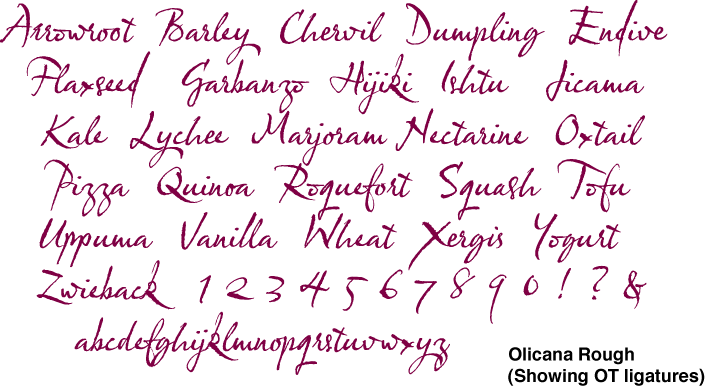 Arrowroot Barley Chervil Dumpling Endive
Flaxseed Garbanzo Hijiki Ishtu Jicama
Kale Lychee Marjoram Nectarine Oxtail
Pizza Quinoa Roquefort Squash Tofu
Uppuma Vanilla Wheat Xergis Yogurt
Zwieback 1 2 3 4 5 6 7 8 9 0 ! ? &
abcdefghijklmnopqrstuvwxyz
Olicana Rough
(Showing OT ligatures)